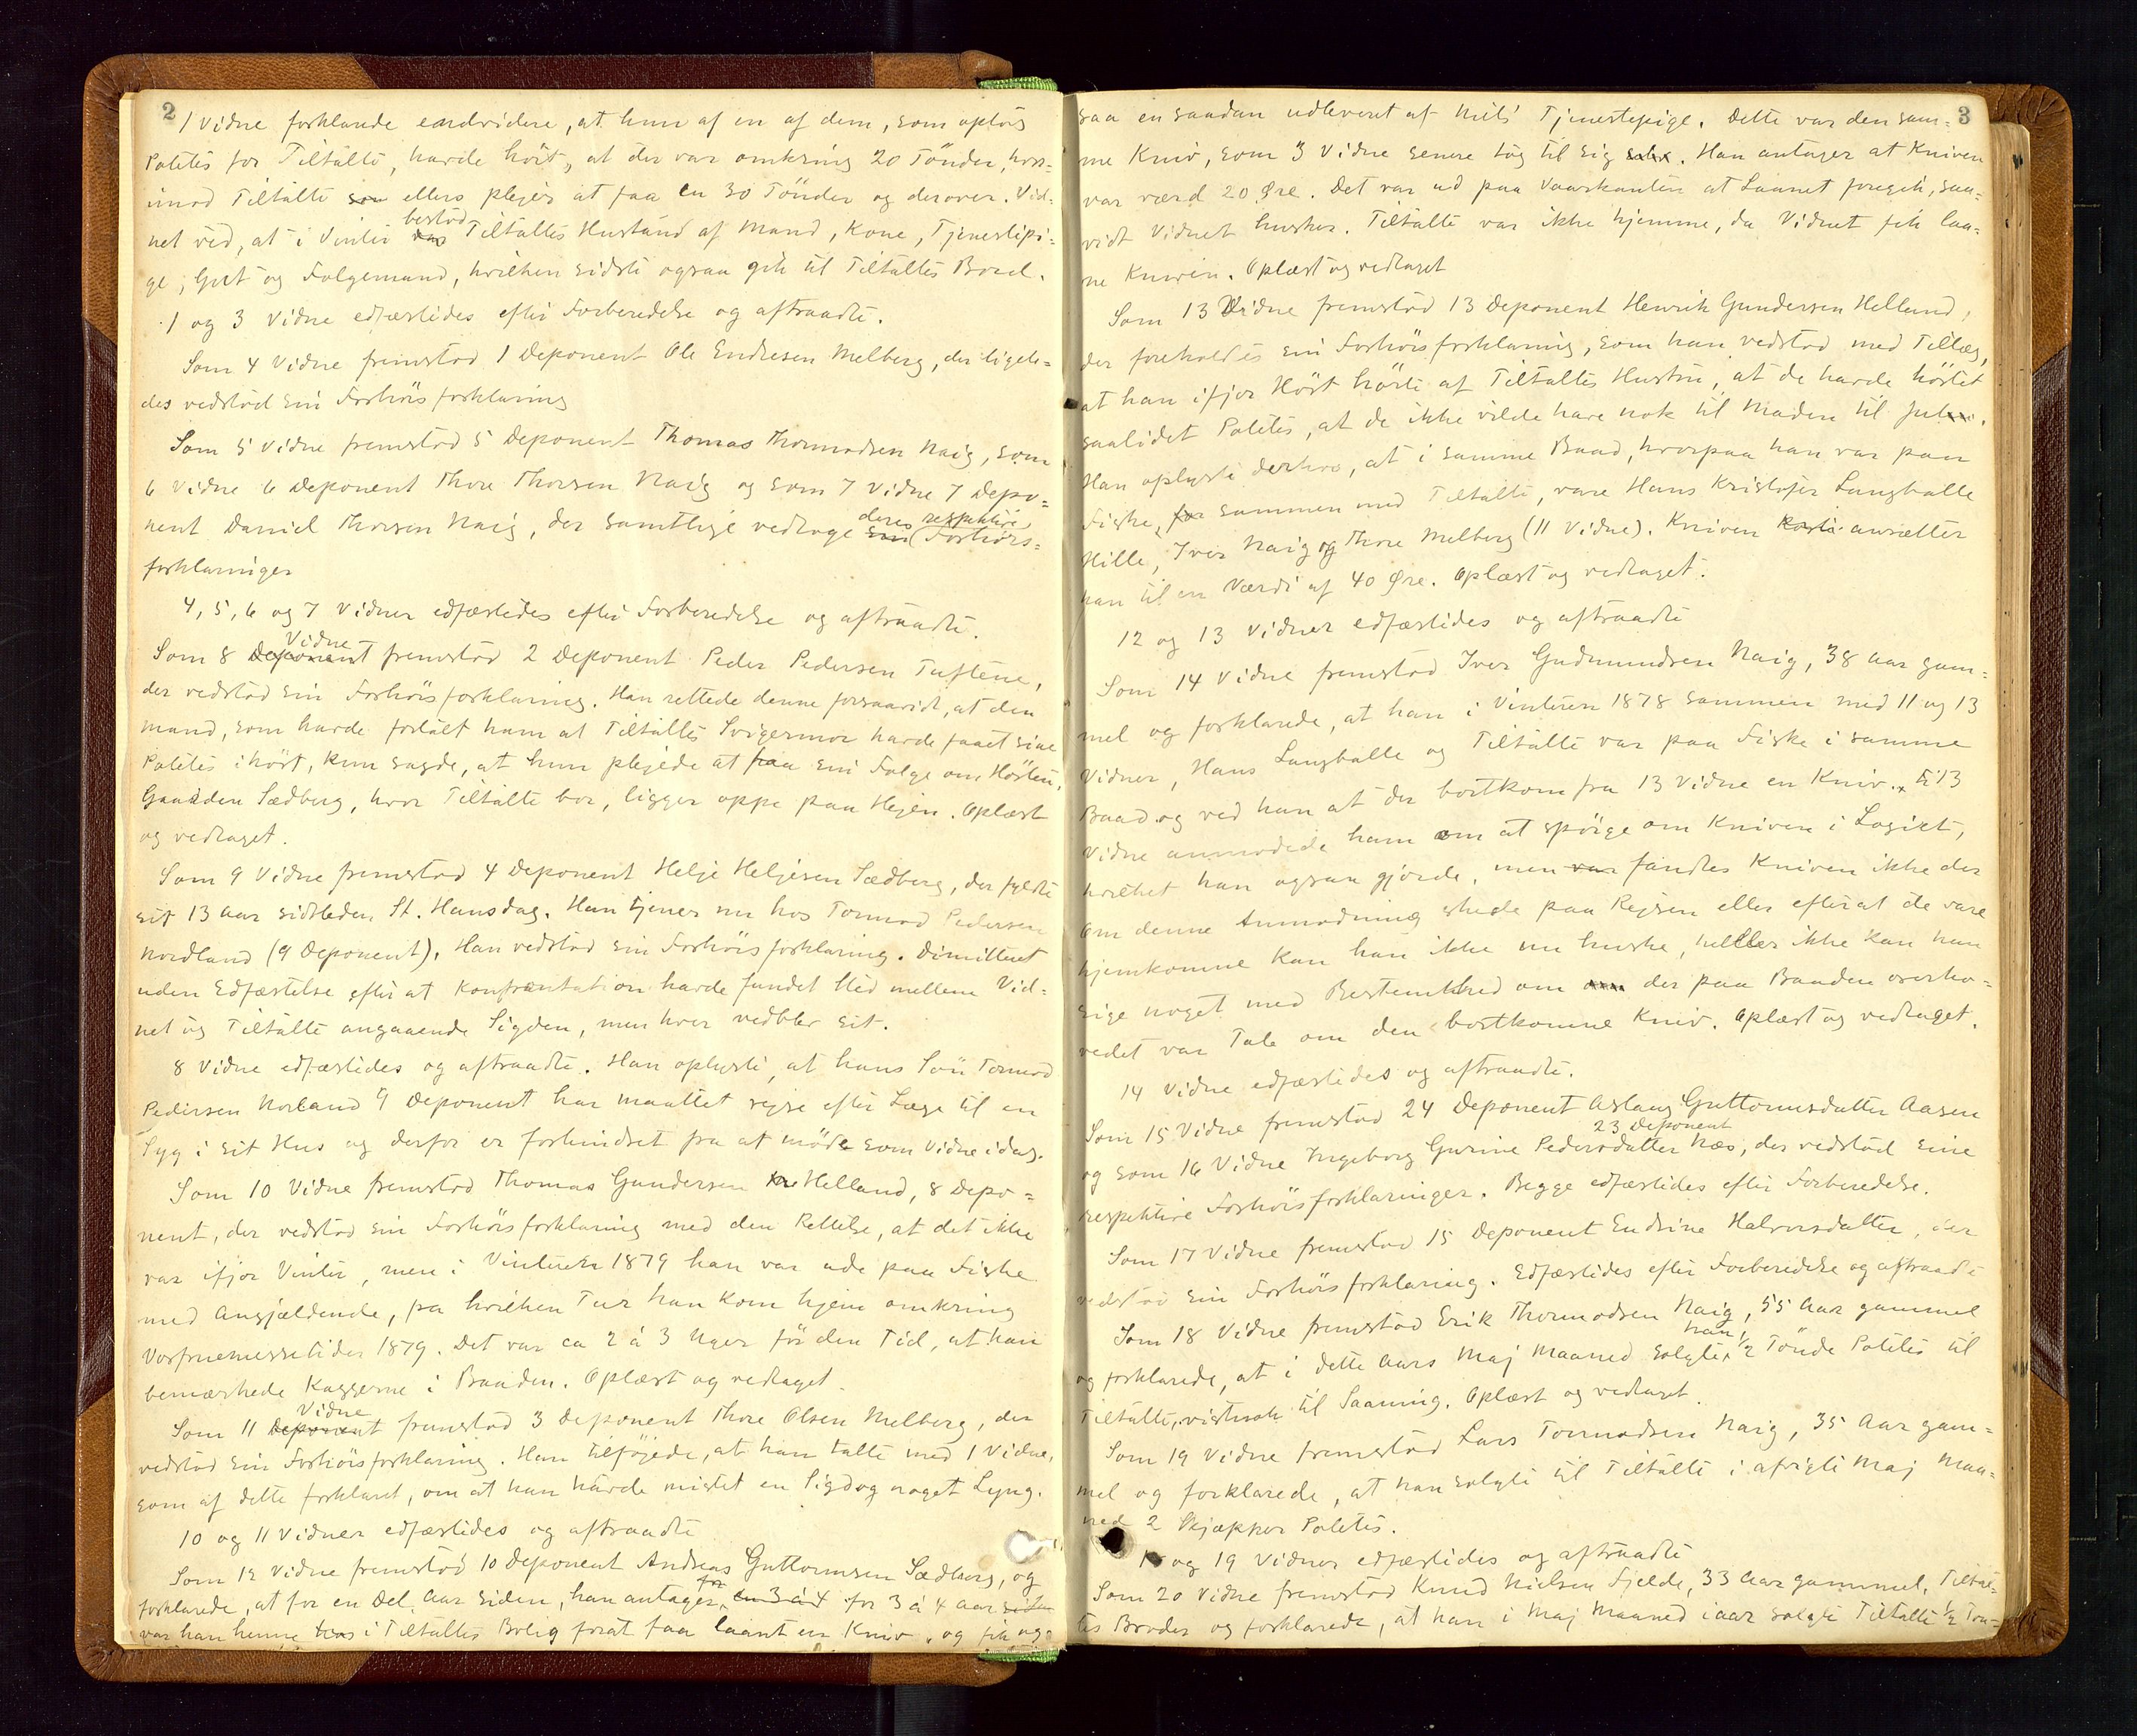 2
1 Vidne forklarede endvidere, at hun af en af dem, som optog
Potetes for Tiltalte, havde hört, at der var omkring 20 Tönder, hvor-
imod Tiltalte som ellers plejer at faa en 30 Tönder og derover. Vid-
net ved, at i Vinter var bestod Tiltaltes Husstand af Mand, Kone, Tjenestepi-
ge, Gut og Folgemand, hvilken sidste ogsaa gik til Tiltaltes Bord.
1 og 3 Vidne edfæstedes efter Forberedelse og aftraadte.
Som 4 Vidne fremstod 1 Deponent Ole Endresen Melberg, der ligele-
des vedstod sin Forhörsforklaring
Som 5 Vidne fremstod 5 Deponent Thomas Thormodsen Naig, som
6 Vidne 6 Deponent Thore Thorsen Naig og som 7 Vidne 7 Depo-
nent Daniel Thorsen Naig, der samtlige vedtoge sin deres respektive Forhörs-
forklaringer
4, 5, 6 og 7 Vidner edfæstedes efter Forberedelse og aftraadte.
Som 8 Deponent Vidne fremstod 2 Deponent Peder Pedersen Tuftene,
der vedstod sin Forhörsforklaring. Han rettede denne forsaavidt, at den
Mand, som havde fortalt ham at Tiltaltes Svigermor havde faaet sine
Potetes i höst, kun sagde, at hun plejede at faa sin Folge om Hösten.
Gaarden Sædberg, hvor Tiltalte bor, ligger oppe paa Hejen. Oplæst
og vedtaget.
Som 9 Vidne fremstod 4 Deponent Helje Heljesen Sædberg, der fyldte
sit 13 Aar sidstleden St. Hansdag. Han tjener nu hos Tormod Pedersen
Nordland (9 Deponent). Han vedstod sin Forhörsforklaring. Dimitteret
uden Edfæstelse efter at Konfrontation havde fundet Sted mellem Vid-
net og Tiltalte angaaende Sigden, men hver vedblev sit.
8 Vidne edfæstedes og aftraadte. Han oplyste, at hans Sön Tormod
Pedersen Norland 9 Deponent har maattet rejse efter Læge til en
Syg i sit Hus og derfor er forhindret fra at möde som Vidne idag.
Som 10 Vidne fremstod Thomas Gundersen Helland, 8 Depo-
nent, der vedstod sin Forhörsforklaring med den Rettelse, at det ikke
var ifjor Vinter, men i Vinteren 1879 han var ude paa Fiske
med Angjældende, fra hvilken Tur han kom hjem omkring
Vorfruemessetider 1879. Det var ca 2 à 3 Uger för den Tid, at han
bemærkede Kaggerne i Baaden. Oplæst og vedtaget.
Som 11 Deponent Vidne fremstod 3 Deponent Thore Olsen Melberg, der
vedstod sin Forhörsforklaring. Han tilföjede, at han talte med 1 Vidne,
som af dette forklaret, om at han havde mistet en Sigd og noget Lyng.
10 og 11 Vidner edfæstedes og aftraadte
Som 12 Vidne fremstod 10 Deponent Andreas Guttormsen Sædberg, og
forklarede, at for en Del Aar siden, han antager for en 3 à 4 for 3 à 4 Aar siden
var han henne hos i Tiltaltes Bolig forat faa laant en Kniv, og fik og-
3
saa en saadan udleveret af Nils' Tjenestepige. Dette var den sam-
me Kniv, som 3 Vidne senere tog til sig. Han antager at Kniven
var værd 20 Øre. Det var ud paa Vaarkanten at Laanet foregik, saa-
vidt Vidnet husker. Tiltalte var ikke hjemme, da Vidnet fik laa-
ne Kniven. Oplæst og vedtaget
Som 13 Vidne fremstod 13 Deponent Henrik Gundersen Helland,
der foreholdtes sin Forhörsforklaring, som han vedstod med Tillæg,
at han ifjor Höst hörte af Tiltaltes Hustru, at de havde höstet
saalidet Potetes, at de ikke vilde have nok til Maden til Jul.
Han oplyste derhos, at i samme Baad, hvorpaa han var paa
Fiske, for sammen med Tiltalte, vare Hans Kristofer Langballe
Hille, Iver Naig og Thore Melberg (11 Vidne). Kniven kostede ansætter
han til en Værdi af 40 Øre. Oplæst og vedtaget.
12 og 13 Vidner edfæstedes og aftraadte
Som 14 Vidne fremstod Iver Gudmundsen Naig, 38 Aar gam-
mel og forklarede, at han i Vinteren 1878 sammen med 11 og 13
Vidner, Hans Langballe og Tiltalte var paa Fiske i samme
Baad og ved han at der bortkom fra 13 Vidne en Kniv. 13
Vidne anmodede ham om at spörge om Kniven i Logiet,
hvilket han ogsaa gjorde, men var fandtes Kniven ikke der
Om denne Anmodning skede paa Rejsen eller efterat de vare
hjemkomne kan han ikke nu huske, heller ikke kan han
sige noget med Bestemthed om der paa Baaden overho-
vedet var Tale om den bortkomne Kniv. Oplæst og vedtaget.
14 Vidne edfæstedes og aftraadte.
Som 15 Vidne fremstod 24 Deponent Aslaug Guttormsdatter Aasen
og som 16 Vidne Ingeborg Gurine Pedersdatter Næs, 23 Deponent der vedstod sine
respektive Forhörsforklaringer. Begge edfæstedes efter Forberedelse.
Som 17 Vidne fremstod 15 Deponent Endrine Halvorsdatter, der
vedstod sin Forhörsforklaring. Edfæstedes efter Forberedelse og aftraadte
Som 18 Vidne fremstod Erik Thormodsen Naig, 55 Aar gammel
og forklarede, at i dette Aars Maj Maaned solgte han 1/2 Tönde Potetes til
Tiltalte, vistnok til Saaning. Oplæst og vedtaget.
Som 19 Vidne fremstod Lars Tormodsen Naig, 35 Aar gam-
mel og forklarede, at han solgte til Tiltalte i afvigte Maj Maa-
ned 2 Skjæpper Potetes.
og 19 Vidner edfæstedes og aftraadte
Som 20 Vidne fremstod Knud Nielsen Fjelde, 33 Aar gammel, Tiltal-
tes Broder og forklarede, at han i Maj Maaned iaar solgte Tiltalte 1/2 Tön-